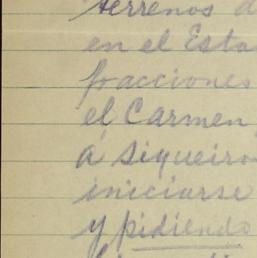 terrenos d
en el Esta
fracciones
el Carmen
á Siqueiro
iniciarse
y pidiendo